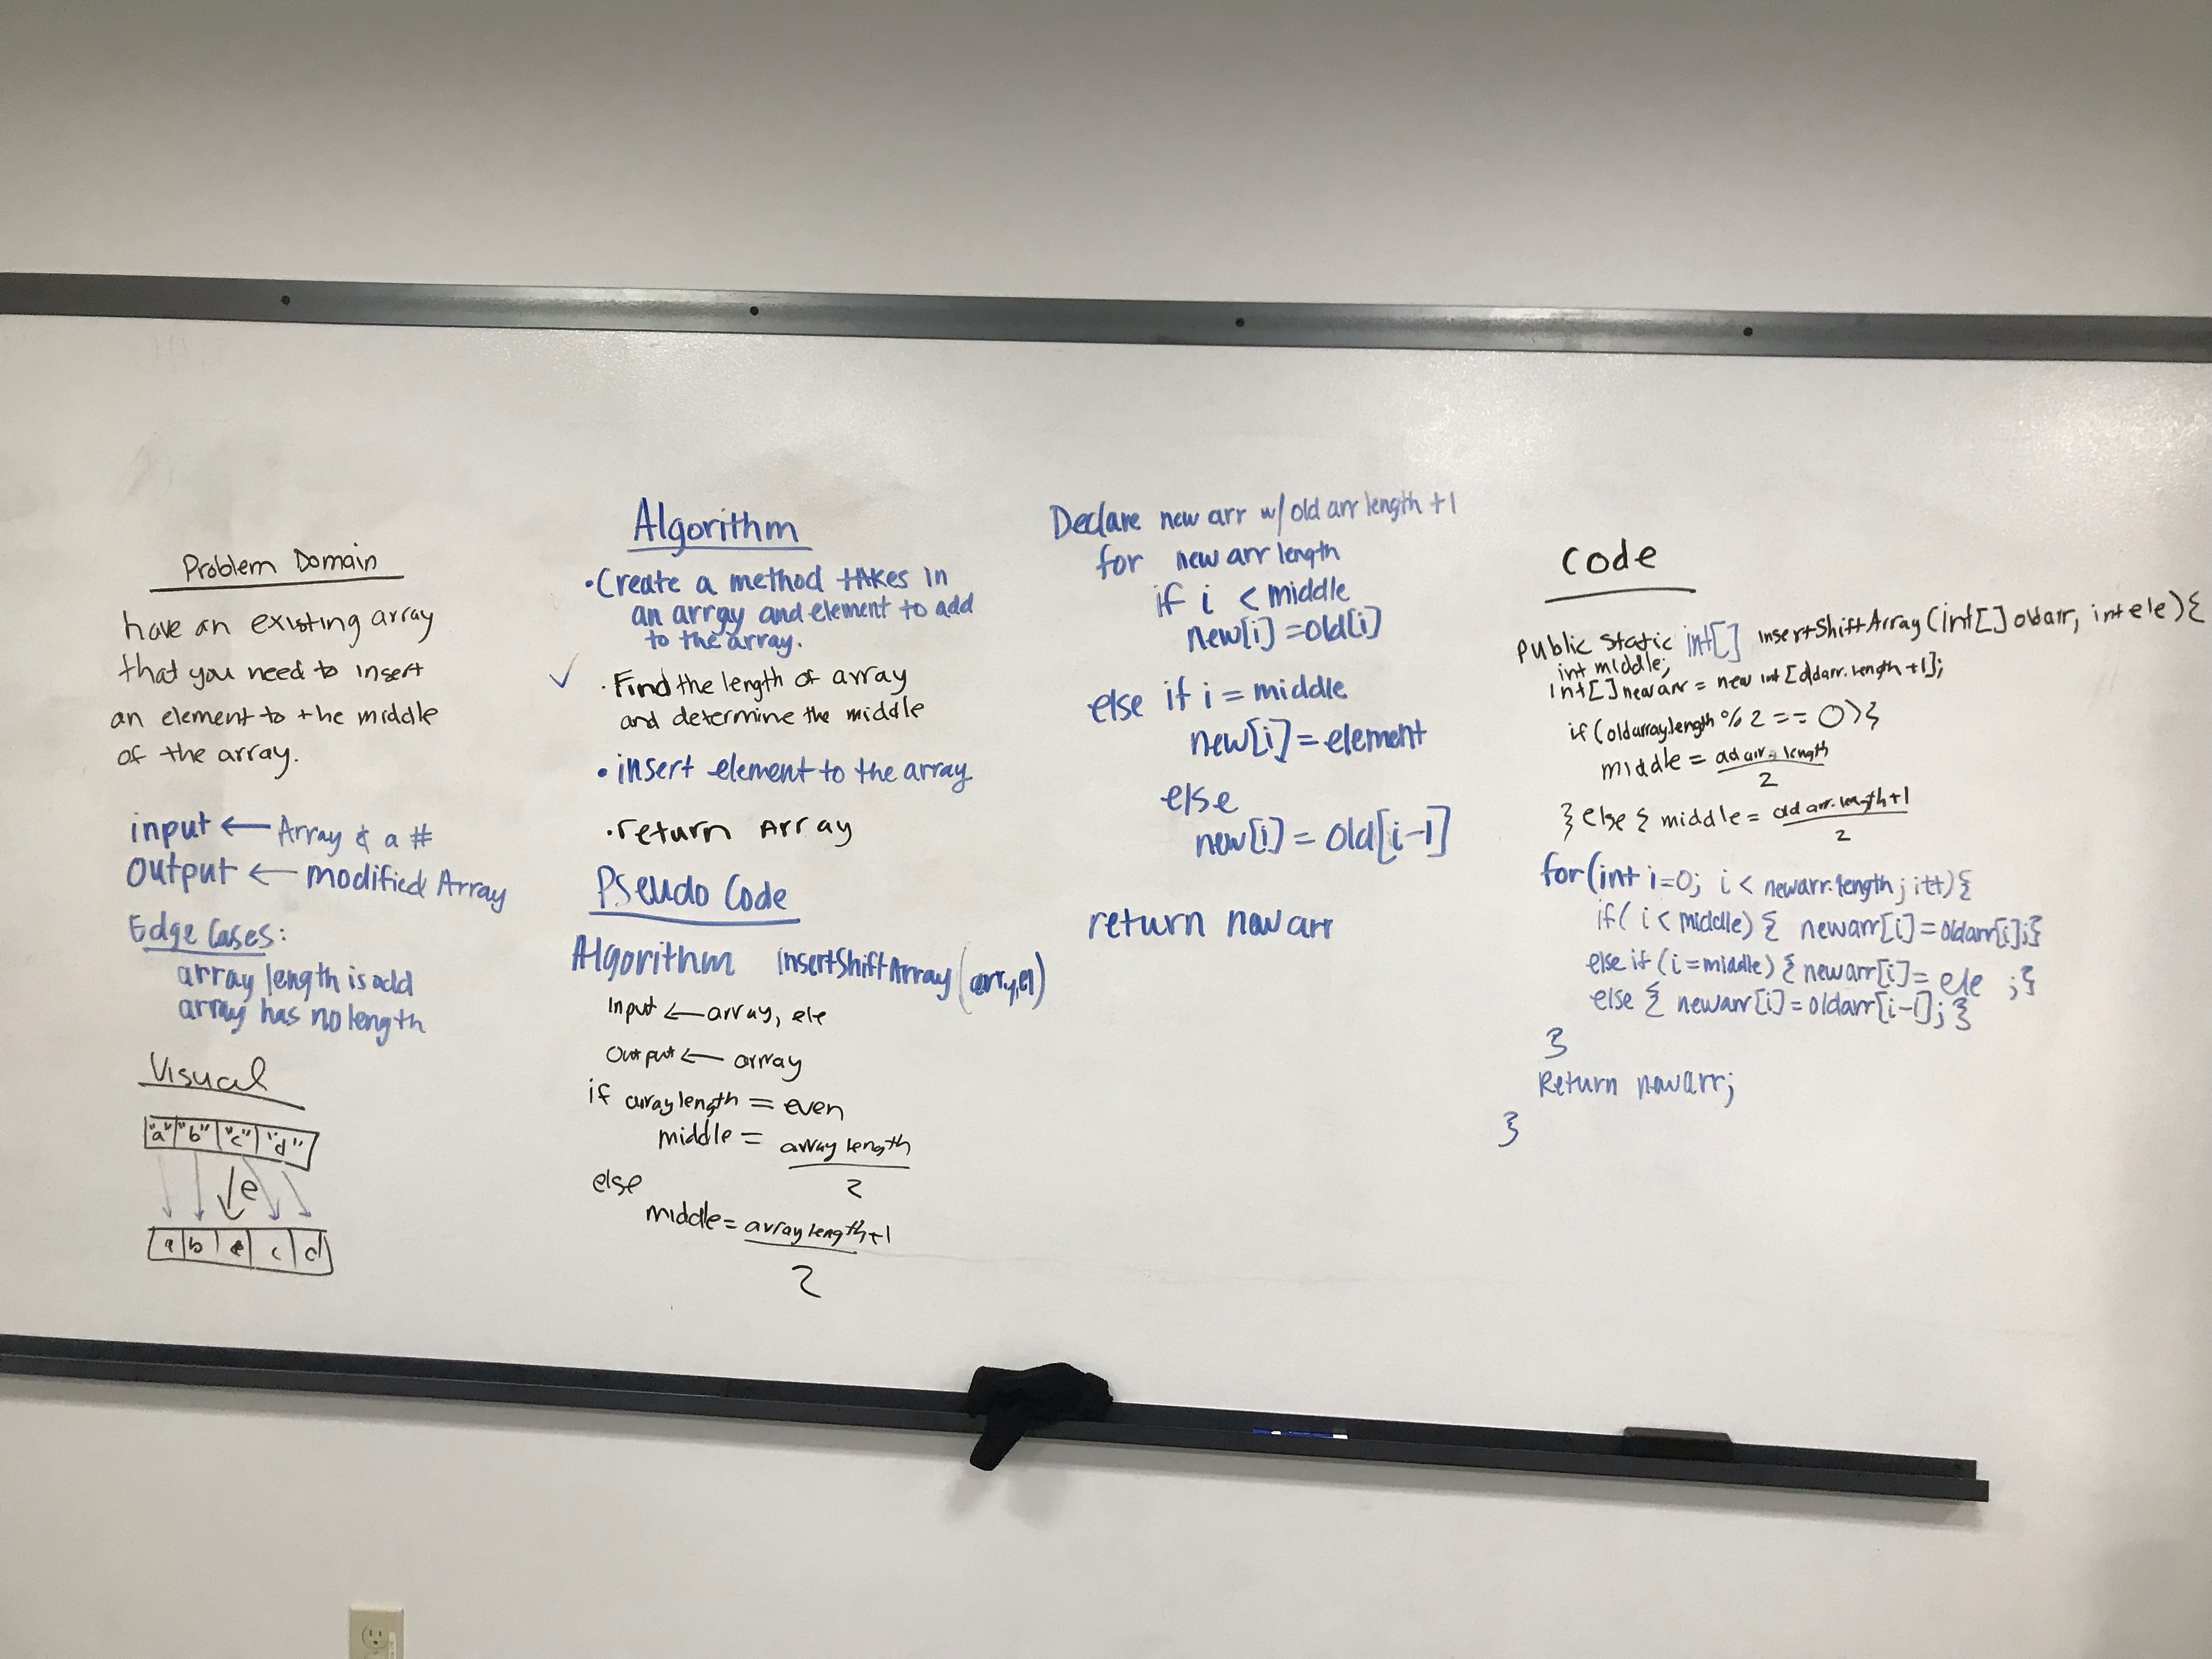 Problem Domain
have an existing array
that you need to insert
an element to the middle
of the array.
input ← Array & a #
Output ← modified Array
Edge Cases:
array length is odd
array has no length
Visual
"a" "b" "c" "d"
e
a b e c d
Algorithm
• Create a method takes in
an array and element to add
to the array.
✓ • Find the length of array
and determine the middle
• insert element to the array
• return Array
Pseudo Code
Algorithm InsertShiftArray (arry, el)
Input ← array, ele
Output ← array
if array length = even
middle = array length
2
else
middle = array length+1
2
Declare new arr w/ old arr length +1
for new arr length
if i < middle
new[i] = old[i]
else if i = middle
new[i] = element
else
new[i] = old[i-1]
return new arr
Code
public static int[] InsertShiftArray (int[] oldarr, int ele) {
int middle;
int[] newarr = new int [oldarr.length +1];
if (oldarray.length % 2 == 0) {
middle = old arr.length
2
} else { middle = old arr.length+1
2
for (int i=0; i < newarr.length; i++) {
if ( i < middle) { newarr[i] = oldarr[i]; }
else if (i = middle) { newarr[i] = ele ; }
else { newarr[i] = oldarr[i-1]; }
}
Return newarr;
}